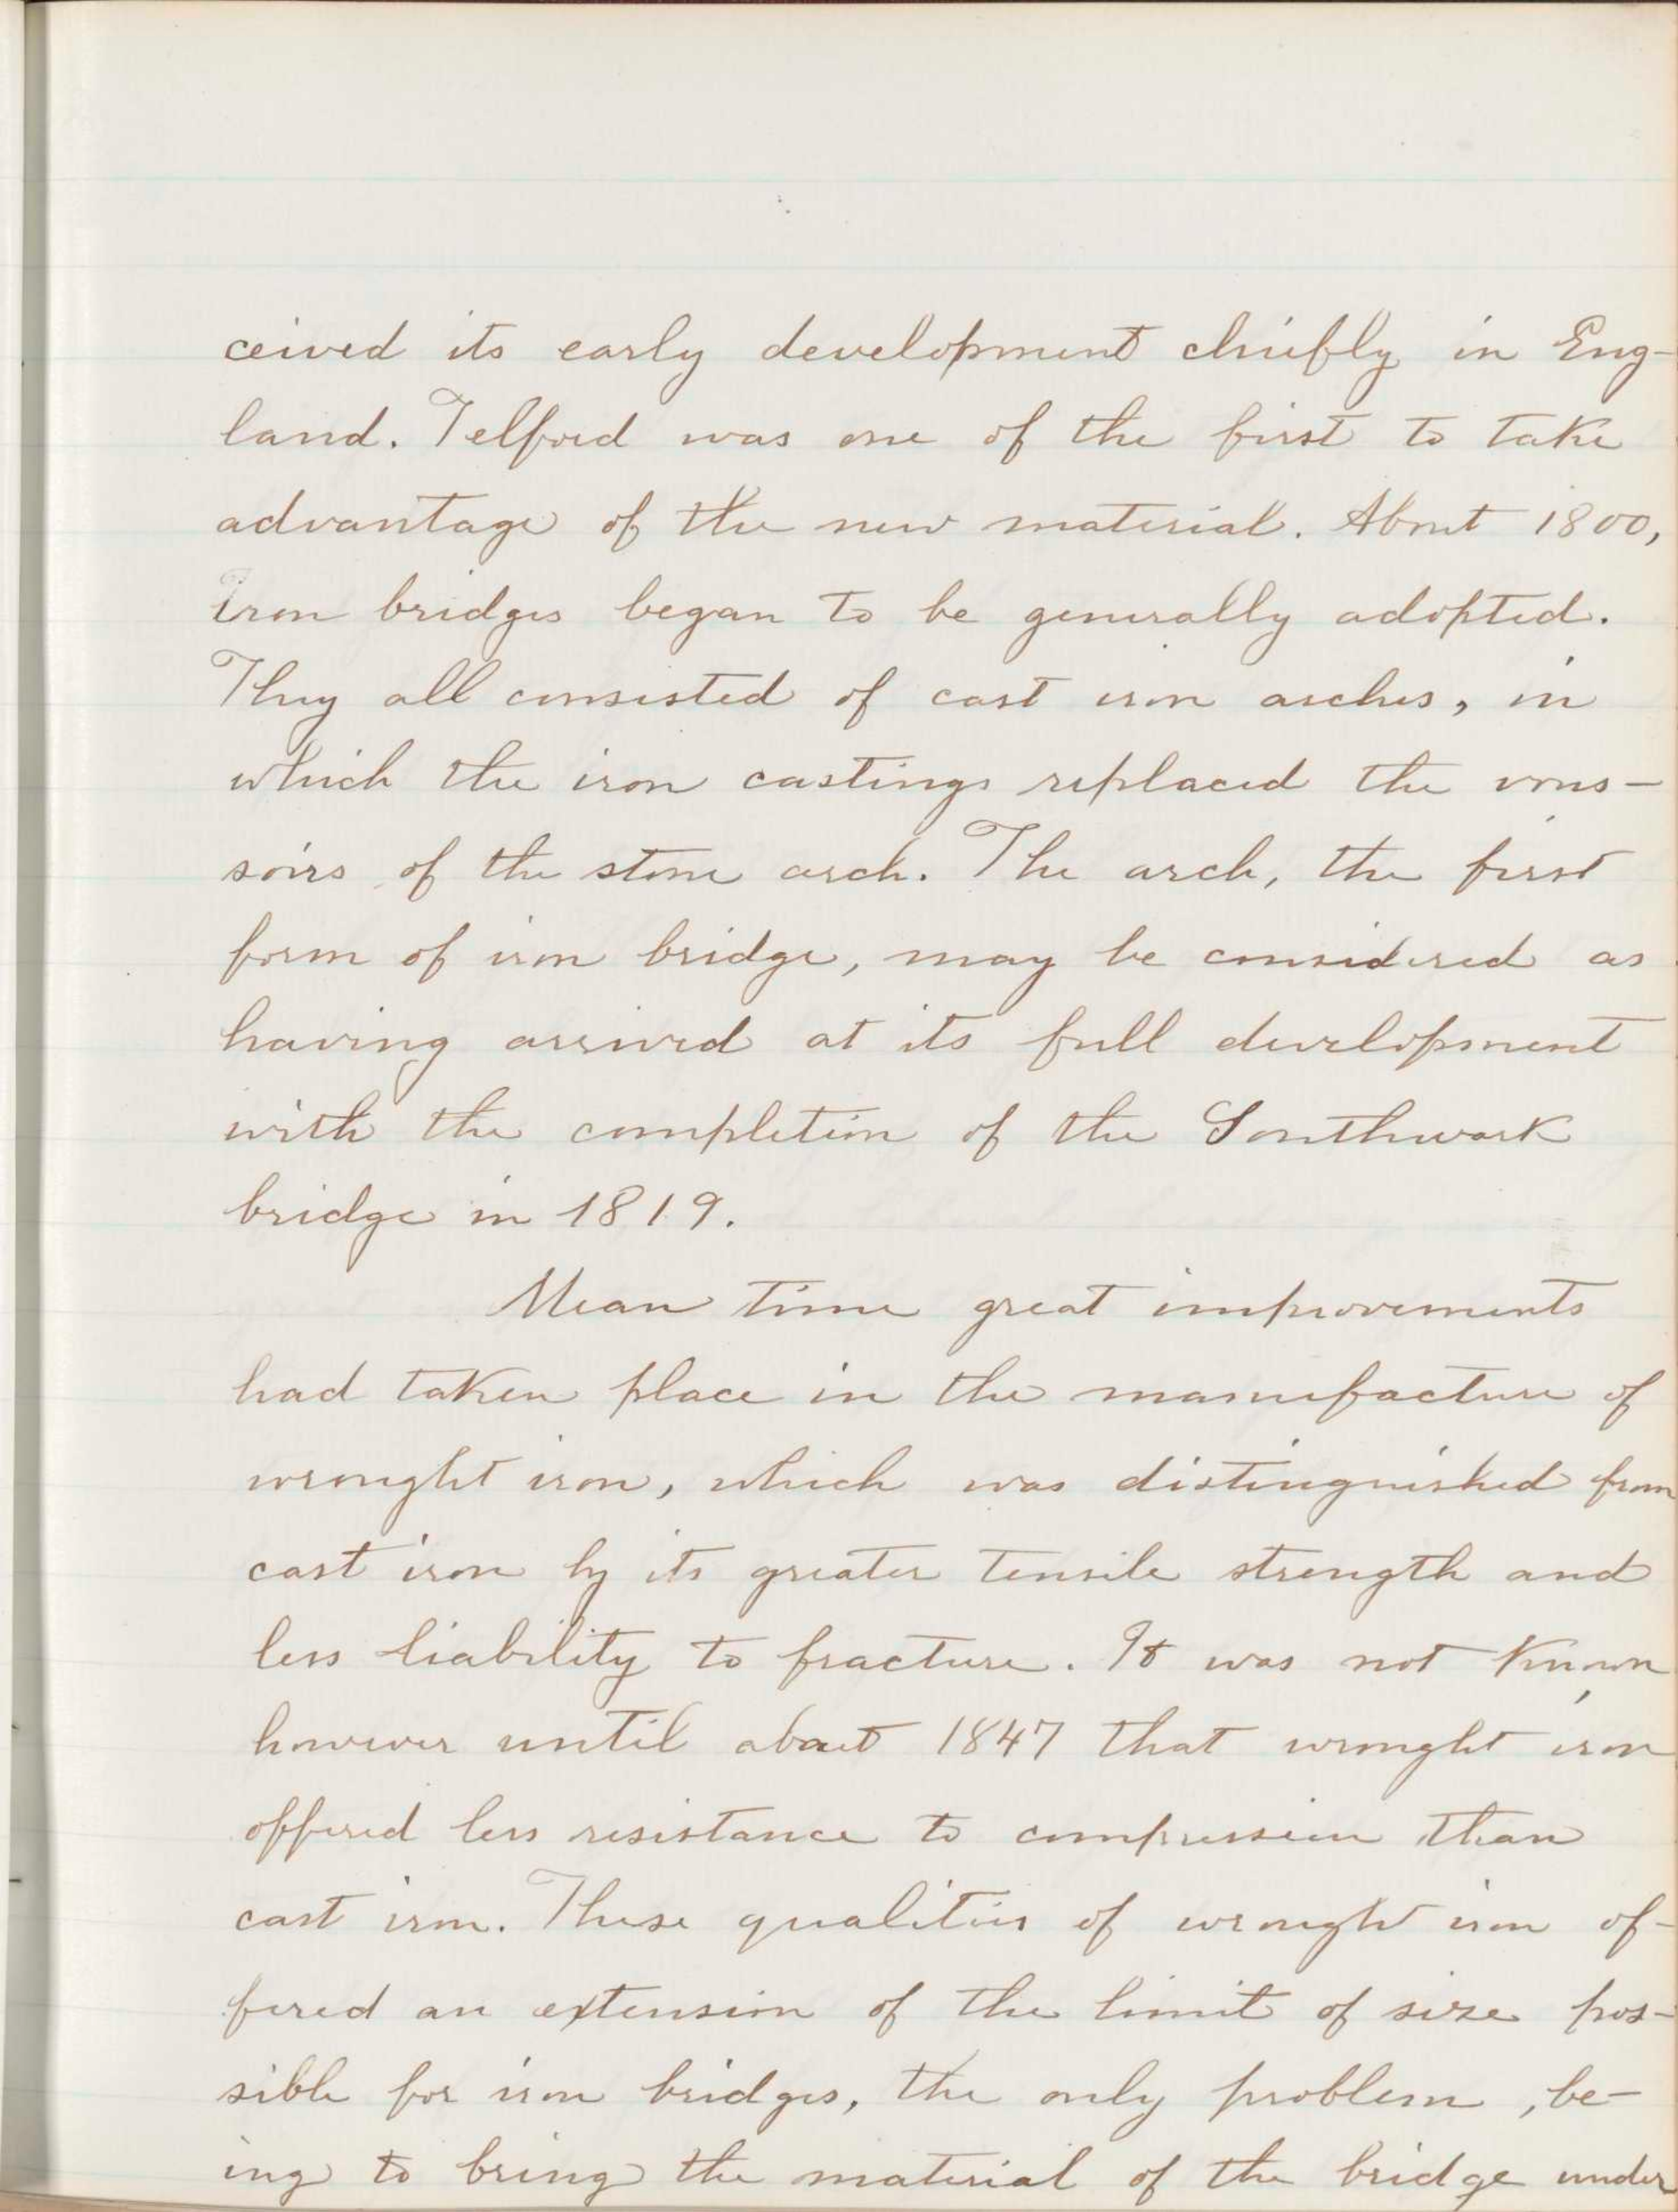 ceived its early development chiefly in Eng-
land. Telford was one of the first to take
advantage of the new material. About 1800,
iron bridges began to be generally adopted.
They all consisted of cast iron arches, in
which the iron castings replaced the vous-
soirs of the stone arch. The arch, the first
form of iron bridge, may be considered as
having arrived at its full development
with the completion of the Southwark
bridge in 1819.
Mean time great improvements
had taken place in the manufacture of
wrought iron, which was distinguished from
cast iron by its greater tensile strength and
less liability to fracture. It was not known
however until about 1847 that wrought iron
offered less resistance to compression than
cast iron. These qualities of wrought iron of-
fered an extension of the limit of size pos-
sible for iron bridges, the only problem, be-
ing to bring the material of the bridge under